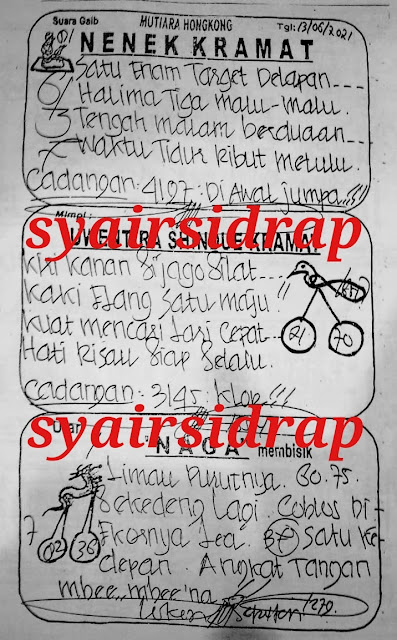 Suara Gaib MUTIARA HONGKONG Tgl: 13/06/2021
NENEK KRAMAT
Satu Enam Target Delapan
6 Halima Tiga malu-malu.
3 Tengah malam berduaan
7 Waktu Tidur Ribut melulu.
Cadangan: 4197: Di Awal jumpa
Mimpi:
syairsidrap
KRAMAT
kiri kanan Sijago Silat
kaki Elang Satu maju"
kuat mencari Lari Cepat
Hati Risau Siap Selalu.
21 70
Cadangan: 3145: klop
syairsidrap
NAGA membisik
Limau Purutnya. 60.75.
Sekedeng Lagi. Coblos di-
7 Ekornya Lea. Satu ke-
02 36
depan. Angkat Tangan
mbee.. mbee'na